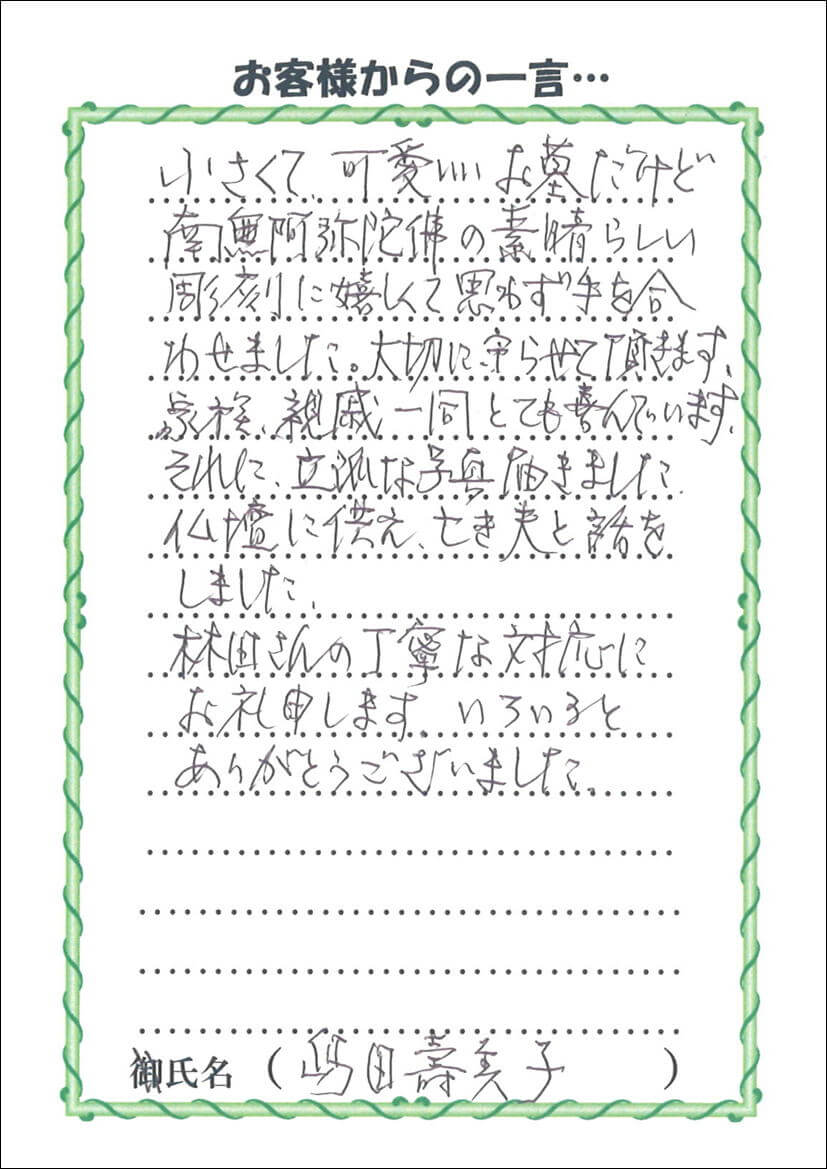 お客様からの一言…
小さくて、可愛いいお墓だけど
南無阿弥陀佛の素晴らしい
彫刻に嬉しくて思わず手を合
わせました。大切に、守らせて頂きます、
家族、親戚一同とても喜んでいます、
それに、立派な写真届きました、
仏壇に供え、亡き夫と話を
しました、
林田さんの丁寧な対応に
お礼申します、いろいろと
ありがとうございました。
御氏名 (嶋田壽美子)